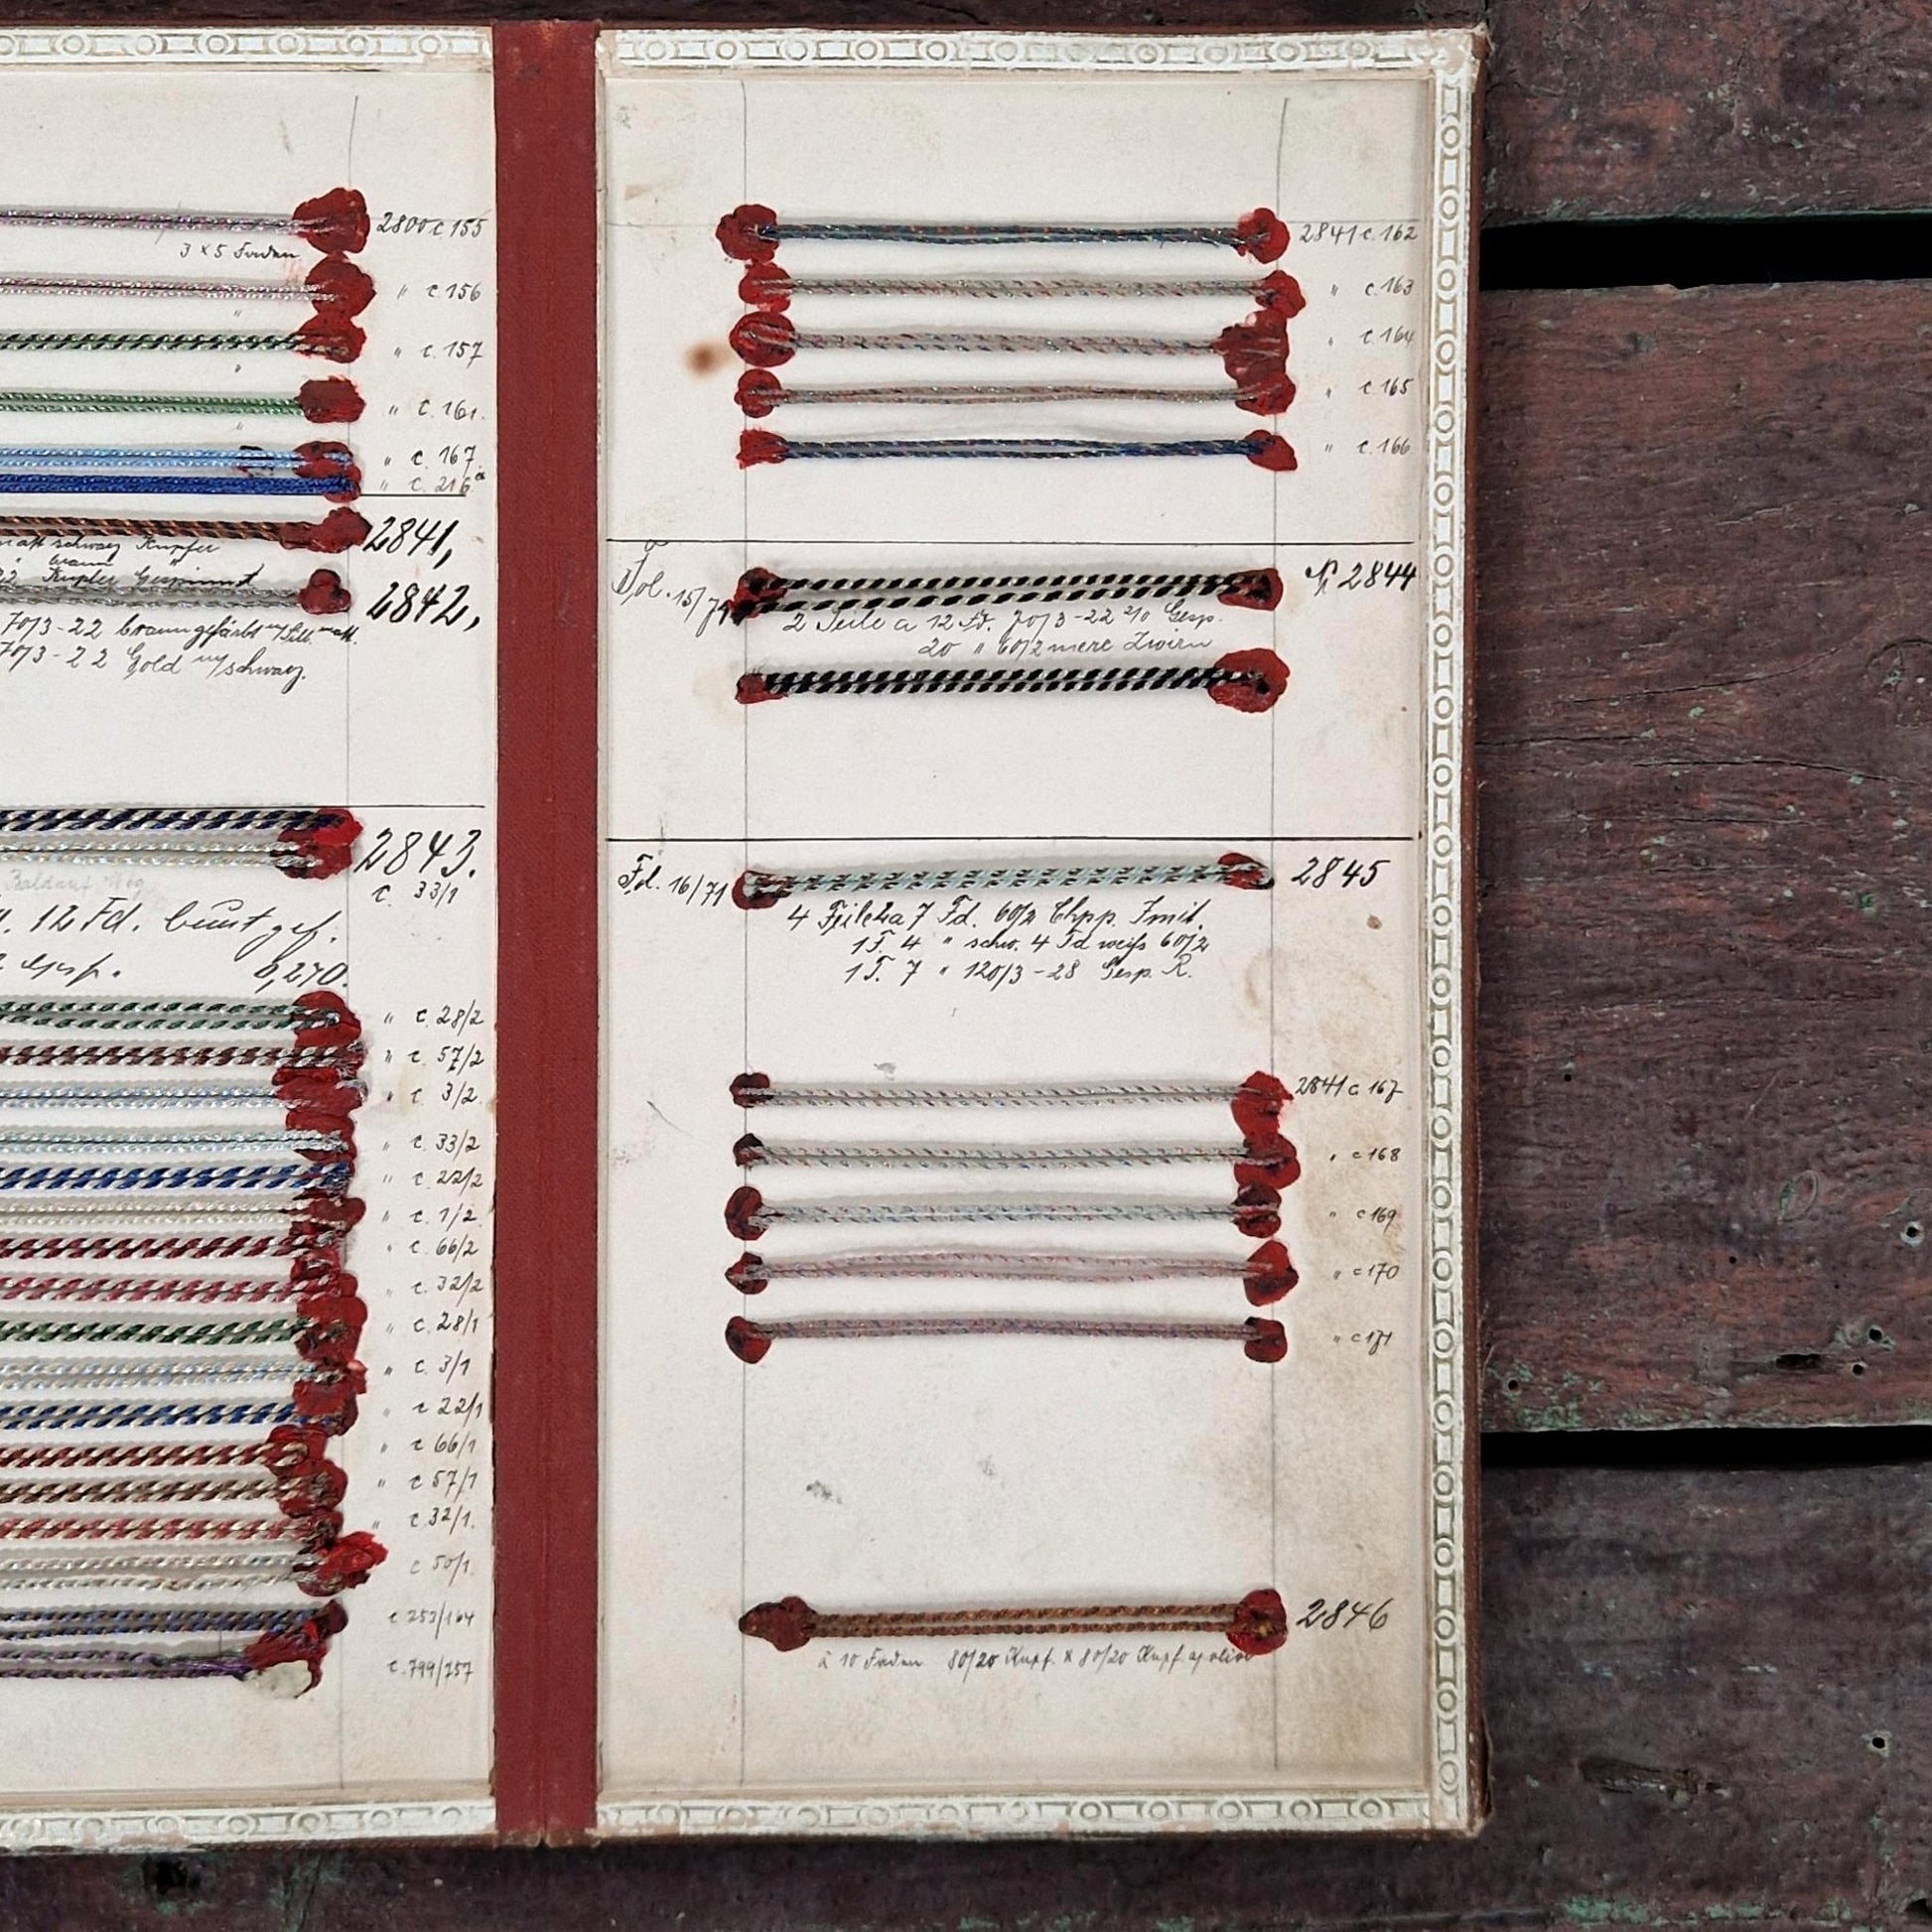 2800 c 155
3 x 5 Faden
" c. 156
"
" c. 157
"
" c. 161.
"
" c. 167
" c. 216 a
2841,
matt schwarz Kupfer
" braun "
22 Kupfer Gespinnst
2842,
70/3-22 braun gefärbt
70/3-22 Gold m/schwarz.
2843.
c. 33/1
12 Fd. bunt gef.
Gesp. 9,270.
" c. 28/2
" c. 57/2
" c. 3/2
" c. 33/2
" c. 22/2
" c. 1/2
" c. 66/2
" c. 32/2
" c. 28/1
" c. 3/1
" c 22/1
" c 66/1
" c 57/1
" c 32/1.
c 50/1
c 253/164
c. 799/757
2841 c. 162
" c. 163
" c. 164
" c. 165
" c. 166
15/71
№ 2844
2 Teile a 12 Fd. 70/3-22 Gesp.
20 " 60/2 merc Zwirn
Fd. 16/71
2845
4 7 Fd. 60/2 Chpp. Imit.
1 T. 4 " schw. 4 Fd weiß 60/2
1 T. 7 " 120/3-28 Gesp. R.
2841 c 167
" c 168
" c 169
" c 170
" c 171
2846
à 10 Faden 80/20 Kupf. x 80/20 Kupf